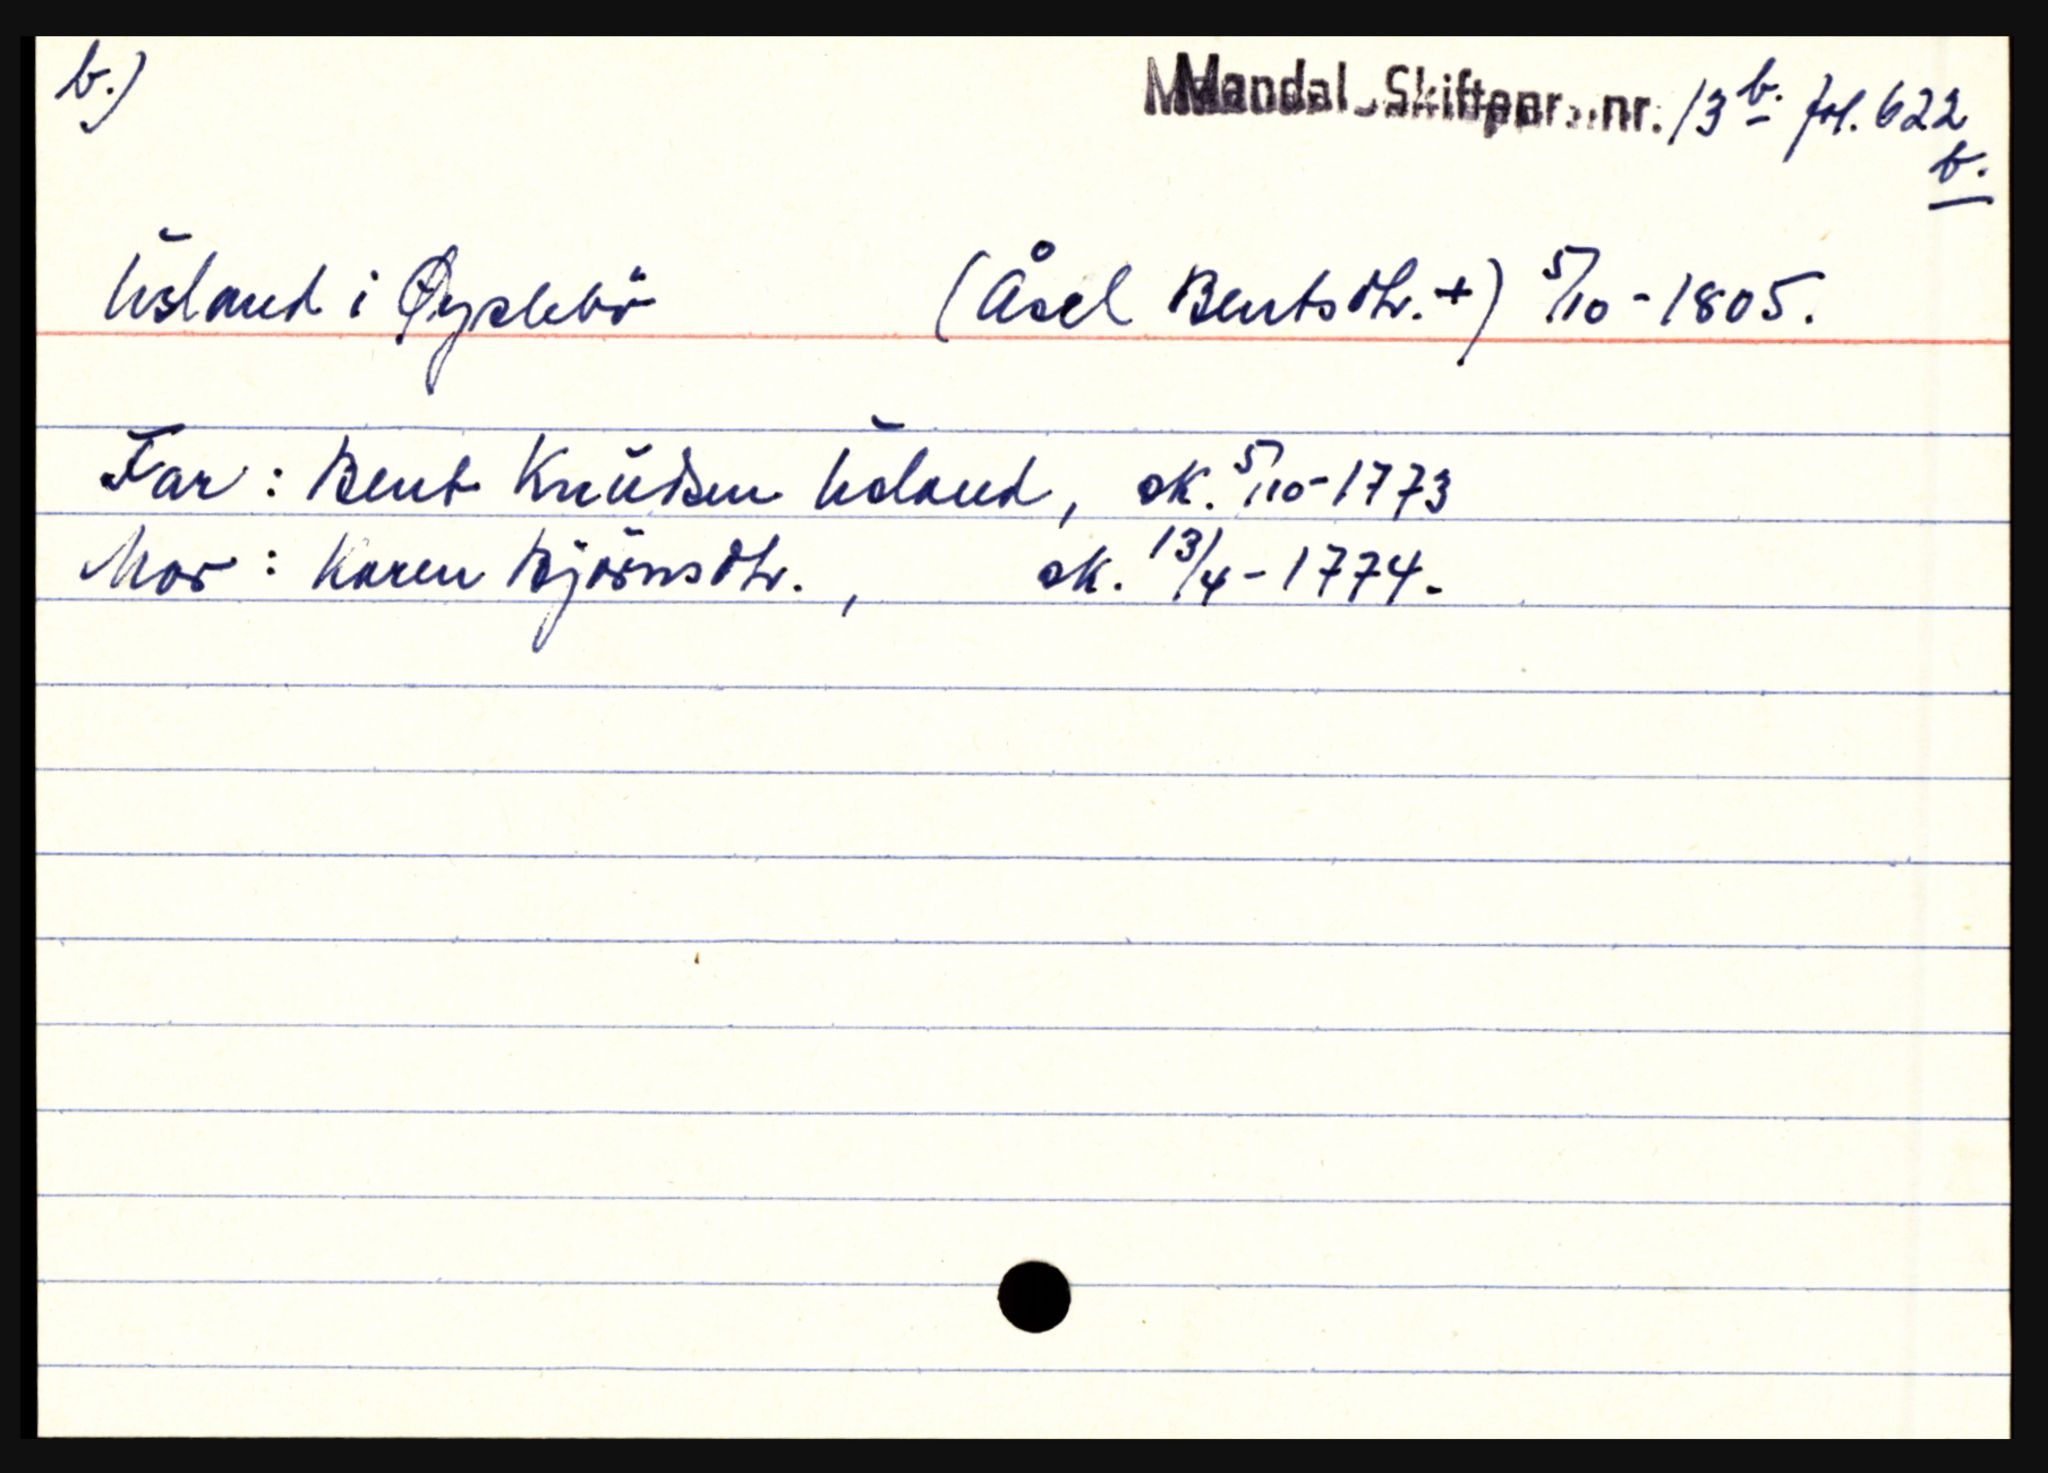 b.) Mandal Skiftepr. nr. 13 b. fol. 622 b.
Usland i Øyslebö (Åsel Bentsdtr. +) 5/10 - 1805.
Far : Bent Knudsen Usland, sk. 5/10 - 1773
Mor : Karen Bjørnsdtr. , sk. 13/4 - 1774.